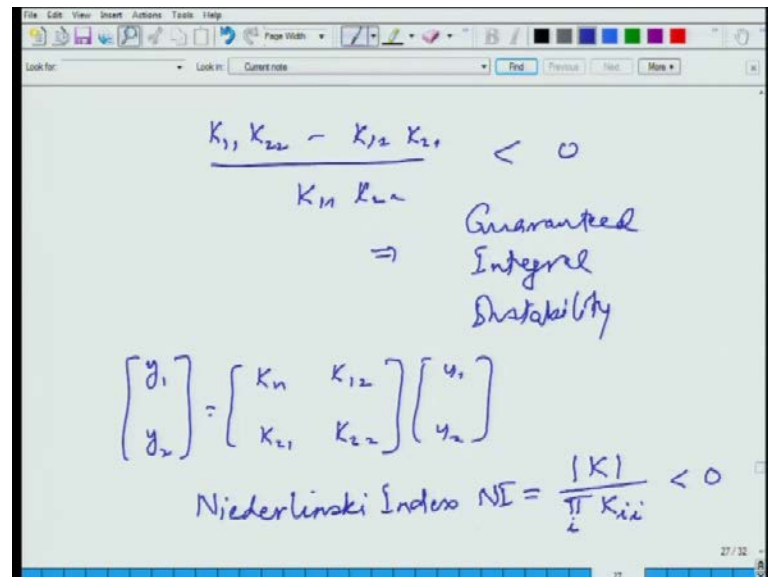 File Edit View Insert Actions Tools Help
Page Width B I
Look for: Look in: Current note Find Previous Next More
K₁₁ K₂₂ − K₁₂ K₂₁ < 0
K₁₁ K₂₂
Guaranteed
⇒ Integral
Instability
[y₁ y₂] = [K₁₁ K₁₂ K₂₁ K₂₂] [u₁ u₂]
Niederlinski Index NI = |K| / π i Kii < 0
27 / 32
27